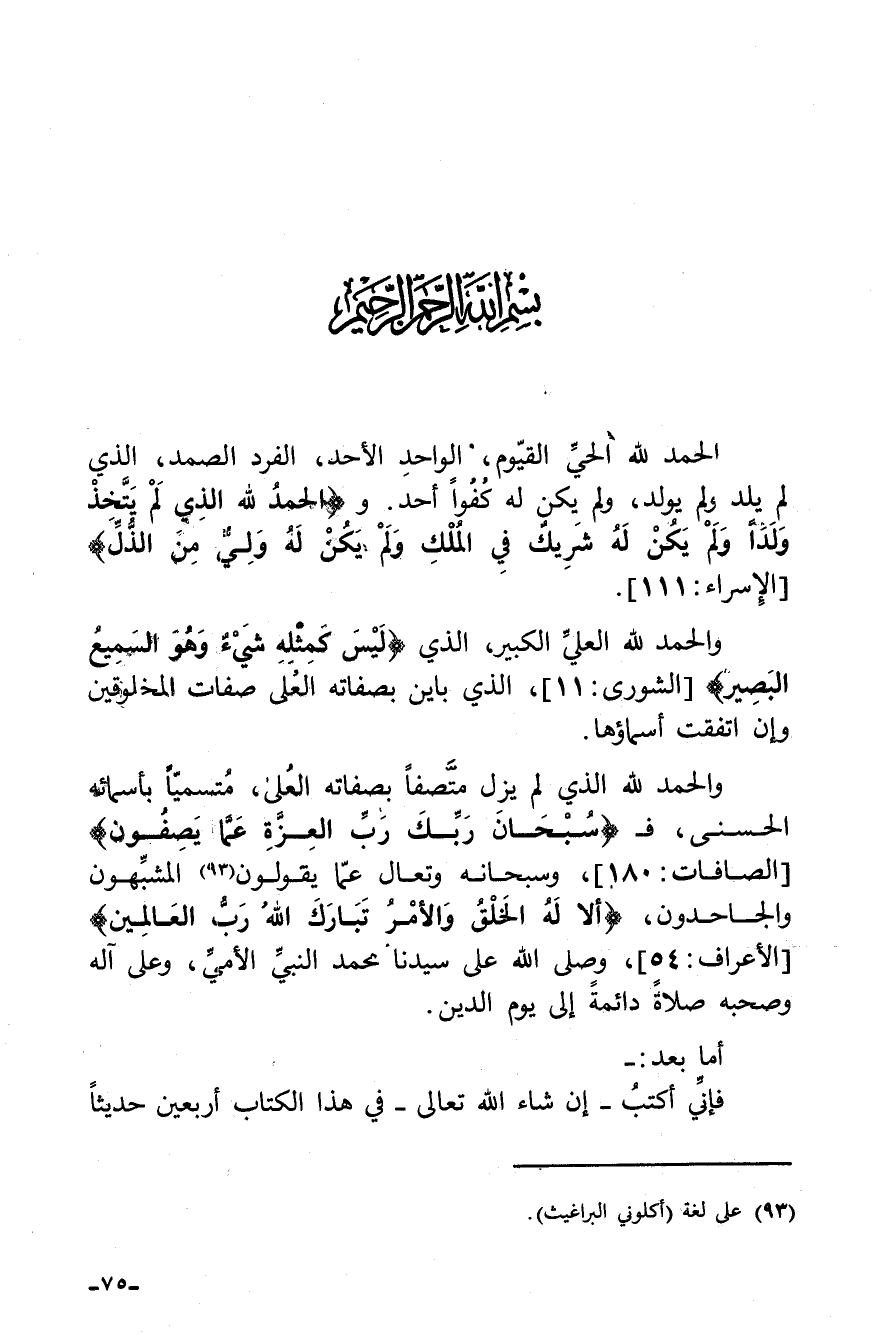 بسم الله الرحمن الرحيم
الحمد لله الحيِّ القيّوم، الواحدِ الأحد، الفرد الصمد، الذي
لم يلد ولم يولد، ولم يكن له كُفُواً أحد. و ﴿الحمدُ لله الذِي لَمْ يَتَّخِذْ
وَلَدَاً وَلَمْ يَكُنْ لَهُ شَرِيكٌ فِي المُلْكِ وَلَمْ يَكُنْ لَهُ وَلِيٌّ مِنَ الذُّلِّ﴾
[الإسراء: ١١١].
والحمد لله العليِّ الكبير، الذي ﴿لَيْسَ كَمِثْلِهِ شَيْءٌ وَهُوَ السَمِيعُ
البَصِير﴾ [الشورى: ١١]، الذي باين بصفاته العُلى صفات المخلوقين
وإن اتفقت أسماؤها.
والحمد لله الذي لم يزل متَّصفاً بصفاته العُلىٰ، مُتسميّاً بأسمائه
الحسنى، فـ ﴿سُبْحَانَ رَبِّكَ رَبِّ العِزَّةِ عَمَّا يَصِفُون﴾
[الصافات: ١٨٠]، وسبحانه وتعال عمّا يقولون(٩٣) المشبِّهون
والجاحدون، ﴿ألا لَهُ الخَلْقُ وَالأمْرُ تَبَارَكَ اللهُ رَبُّ العَالمِين﴾
[الأعراف: ٥٤]، وصلى الله على سيدنا محمد النبيِّ الأميِّ، وعلى آله
وصحبه صلاةً دائمةً إلى يوم الدين.
أما بعد:ـ
فإنِّي أكتبُ ـ إن شاء الله تعالى ـ في هذا الكتاب أربعين حديثاً
(٩٣) على لغة (أكلوني البراغيث).
ـ٧٥ـ